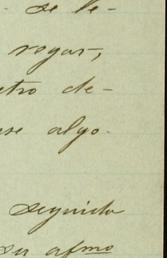 - se le-
rogar,
otro de-
se algo.
seguida
su afmo